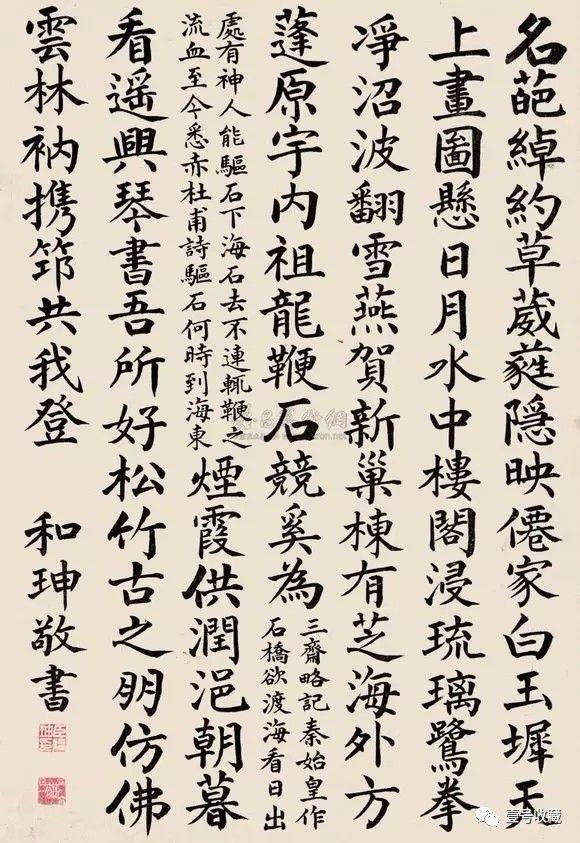 名葩綽約草葳蕤隱映僊家白玉墀天
上畫圖懸日月水中樓閣浸琉璃鷺拳
凈沼波翻雪燕賀新巢棟有芝海外方
蓬原宇内祖龍鞭石競奚為
三齋略記秦始皇作
石橋欲渡海看日出
處有神人能驅石下海石去不連輒鞭之
流血至今悉赤杜甫詩驅石何時到海東
煙霞供潤浥朝暮
看遥興琴書吾所好松竹古之朋仿佛
雲林衲携筇共我登 和珅敬書
壹号收藏